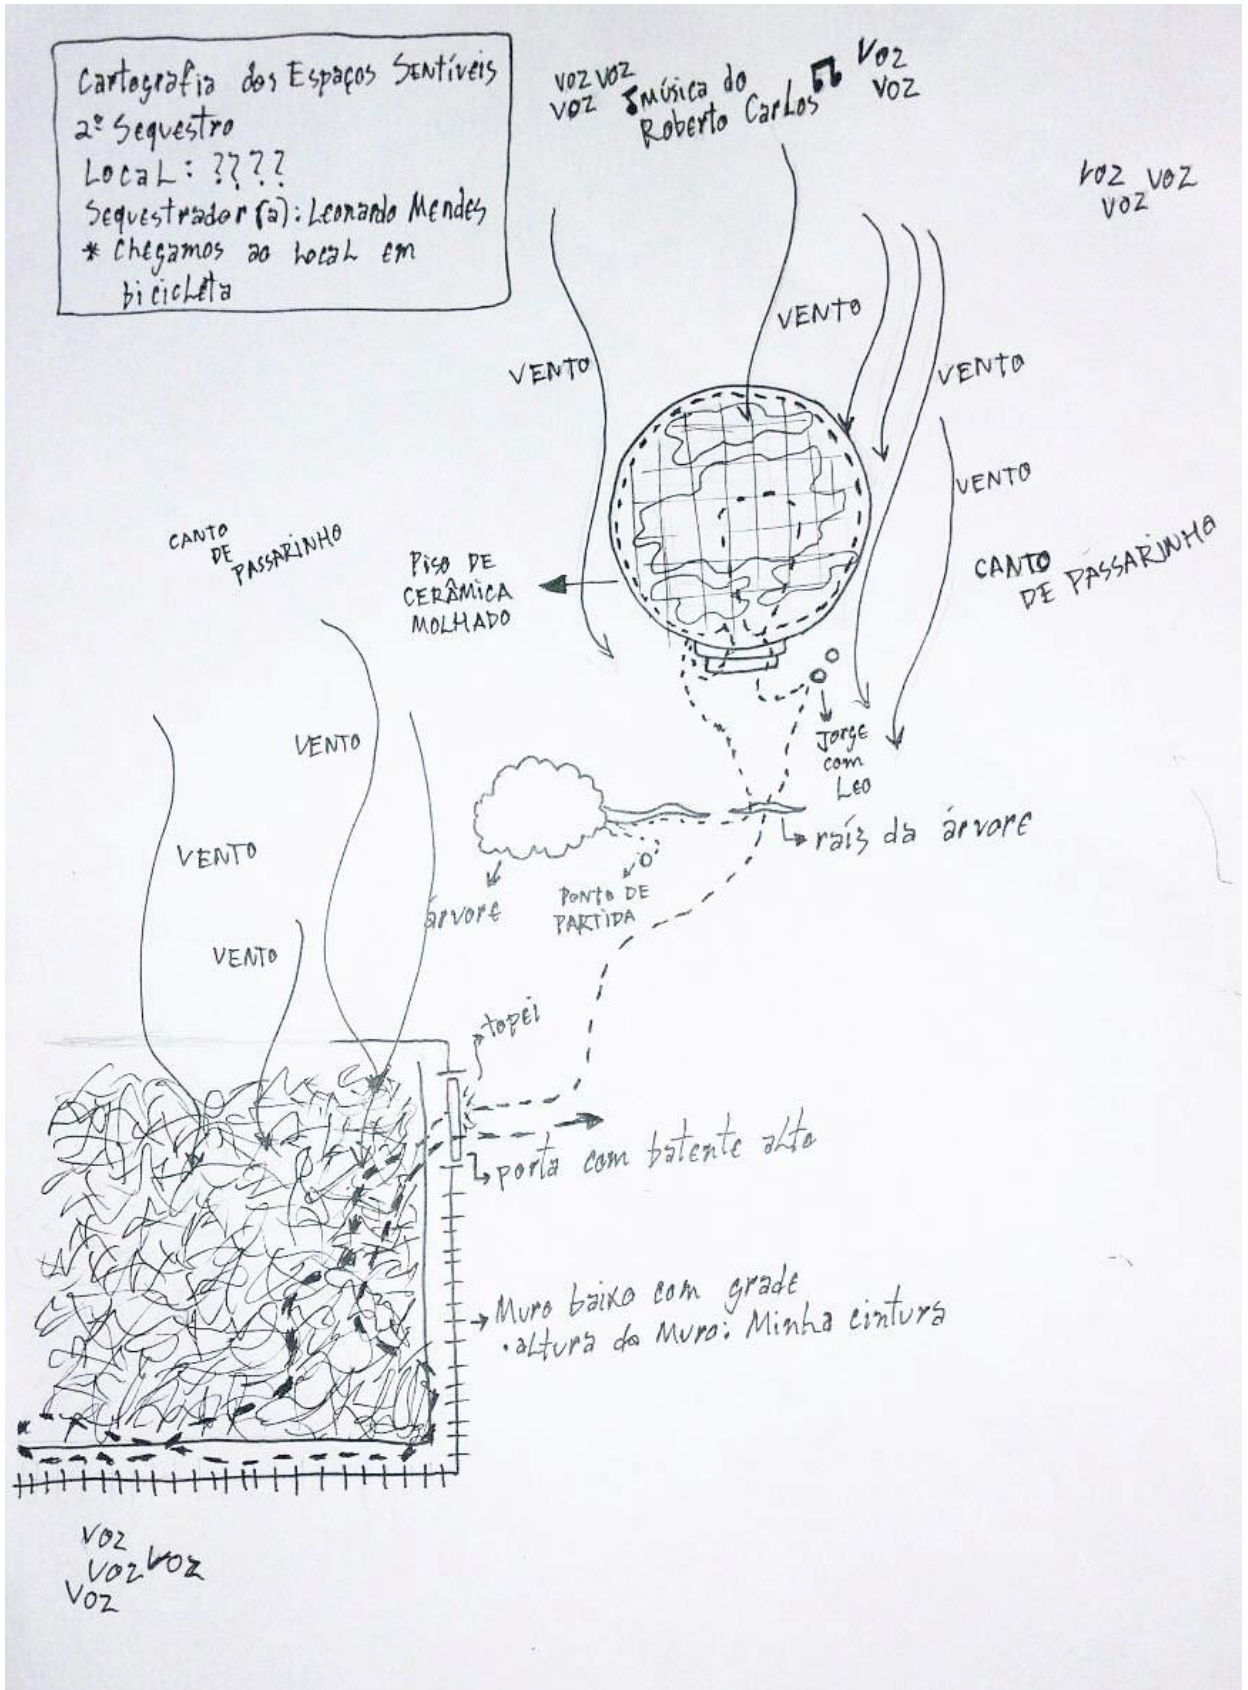 Cartografia dos Espaços Sentíveis
2º Sequestro
Local: ????
Sequestrador(a): Leonardo Mendes
* Chegamos ao local em
bicicleta
VOZ VOZ
VOZ
Música do
Roberto Carlos
VOZ
VOZ
VOZ VOZ
VOZ
VENTO
VENTO
VENTO
VENTO
CANTO
DE
PASSARINHO
PISO DE
CERÂMICA
MOLHADO
CANTO
DE PASSARINHO
Jorge
com
Leo
VENTO
VENTO
VENTO
árvore
PONTO DE
PARTIDA
raíz da árvore
topei
porta com batente alto
Muro baixo com grade
• altura do Muro: Minha cintura
VOZ
VOZ VOZ
VOZ